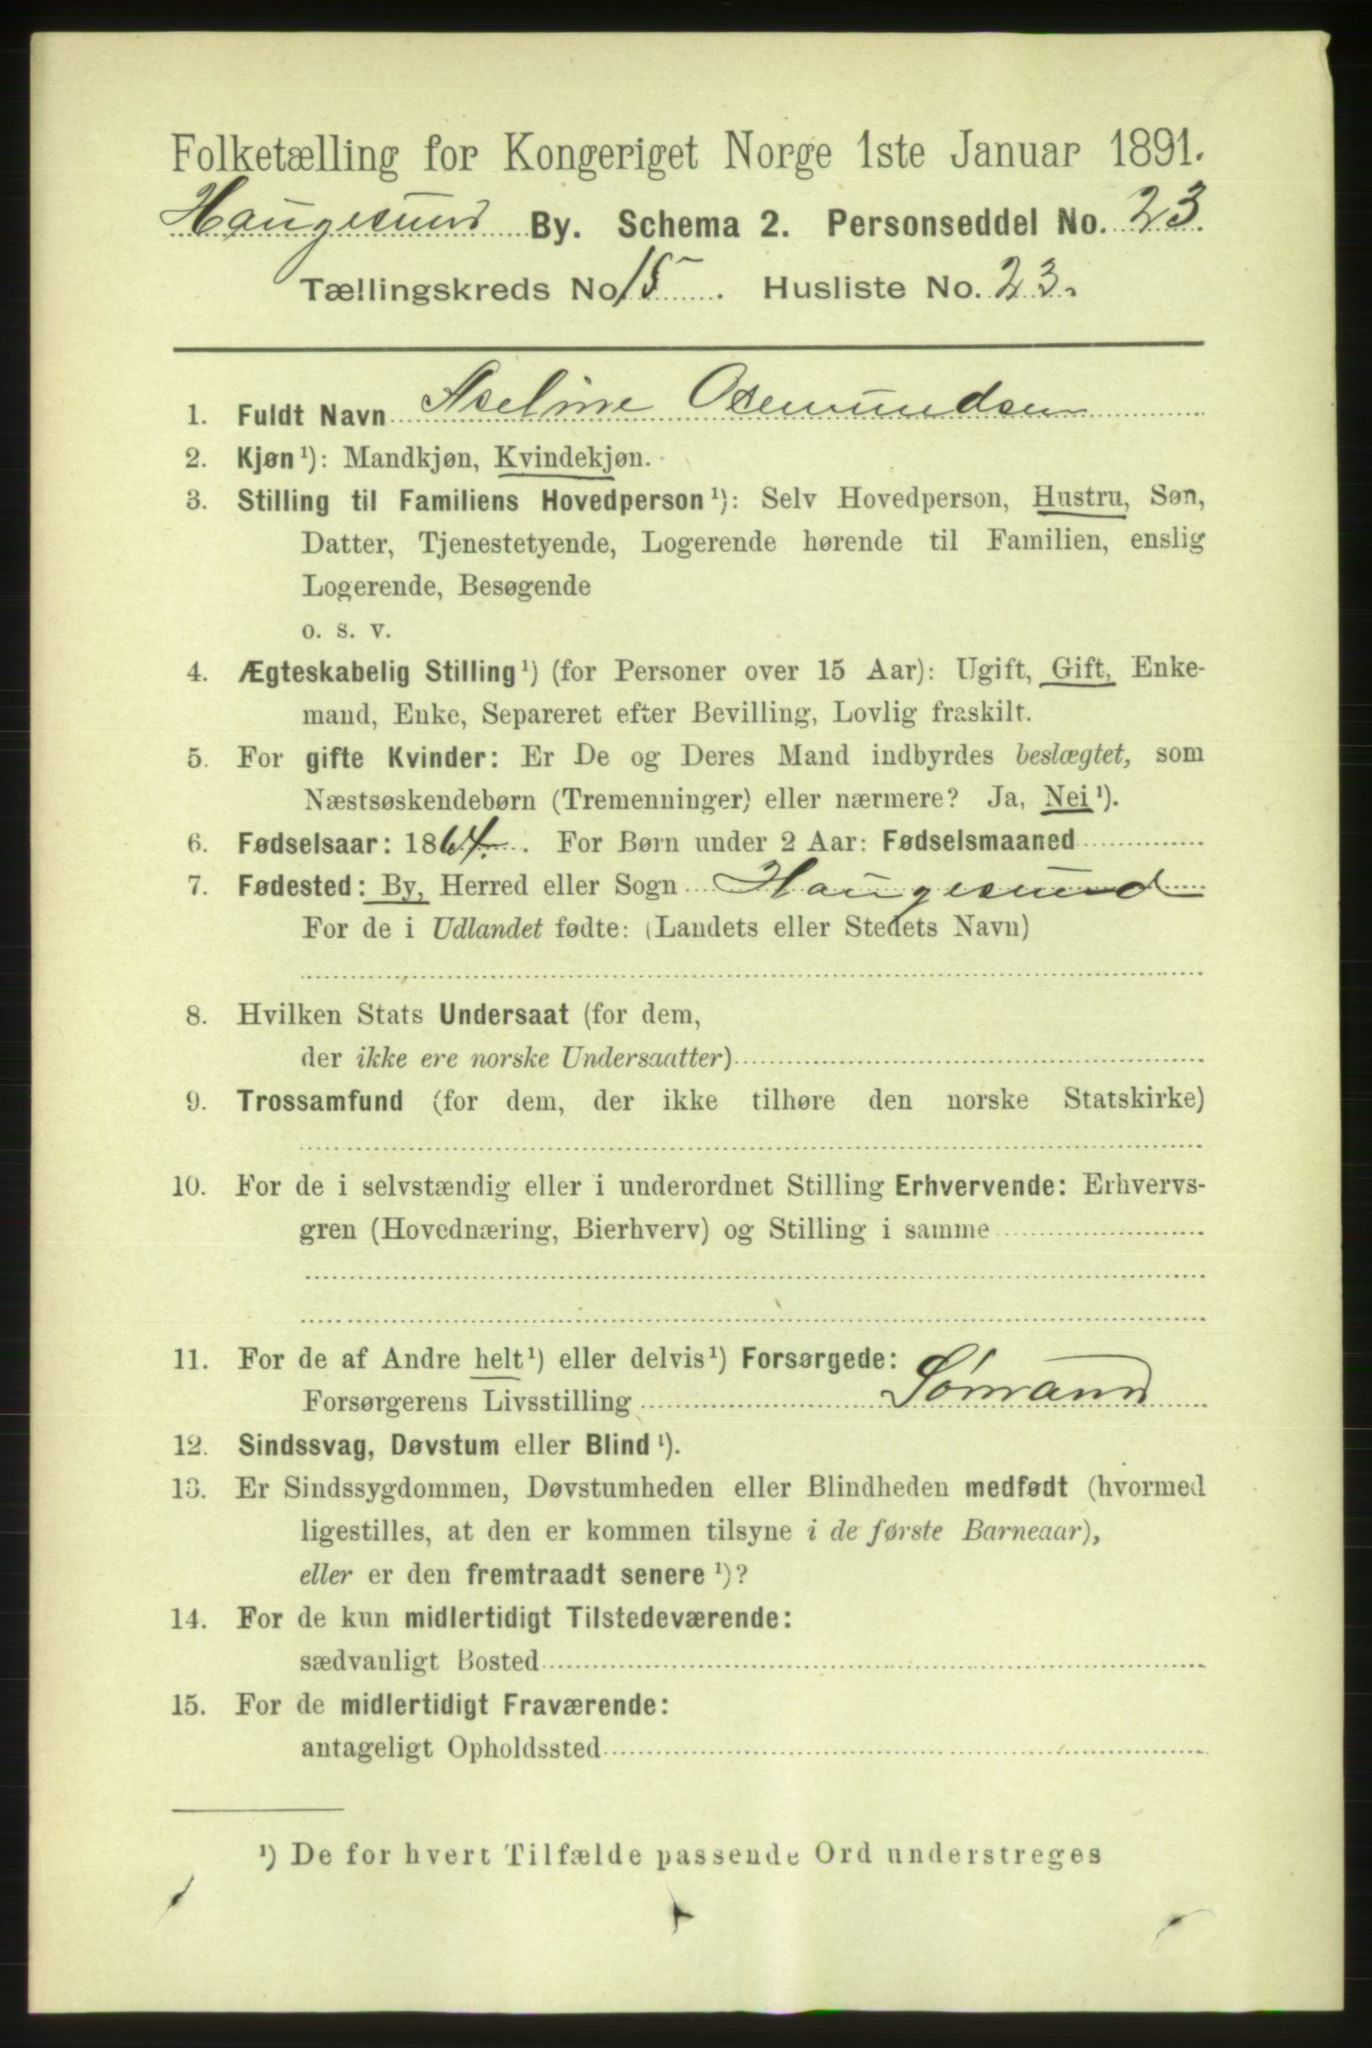 Folketælling for Kongeriget Norge 1ste Januar 1891.
Haugesund By. Schema 2. Personseddel No. 23.
Tællingskreds No 15. Husliste No. 23.
1. Fuldt Navn Aseline Osmundsen
2. Kjøn ¹): Mandkjøn, Kvindekjøn.
3. Stilling til Familiens Hovedperson ¹): Selv Hovedperson, Hustru, Søn,
Datter, Tjenestetyende, Logerende hørende til Familien, enslig
Logerende, Besøgende
o. s. v.
4. Ægteskabelig Stilling ¹) (for Personer over 15 Aar): Ugift, Gift, Enke-
mand, Enke, Separeret efter Bevilling, Lovlig fraskilt.
5. For gifte Kvinder: Er De og Deres Mand indbyrdes beslægtet, som
Næstsøskendebørn (Tremenninger) eller nærmere? Ja, Nei ¹).
6. Fødselsaar: 1864. For Børn under 2 Aar: Fødselsmaaned
7. Fødested: By, Herred eller Sogn Haugesund
For de i Udlandet fødte: (Landets eller Stedets Navn)
8. Hvilken Stats Undersaat (for dem,
der ikke ere norske Undersaatter)
9. Trossamfund (for dem, der ikke tilhøre den norske Statskirke)
10. For de i selvstændig eller i underordnet Stilling Erhvervende: Erhvervs-
gren (Hovednæring, Bierhverv) og Stilling i samme
11. For de af Andre helt ¹) eller delvis ¹) Forsørgede:
Forsørgerens Livsstilling Sømand
12. Sindssvag, Døvstum eller Blind ¹).
13. Er Sindssygdommen, Døvstumheden eller Blindheden medfødt (hvormed
ligestilles, at den er kommen tilsyne i de første Barneaar),
eller er den fremtraadt senere ¹)?
14. For de kun midlertidigt Tilstedeværende:
sædvanligt Bosted
15. For de midlertidigt Fraværende:
antageligt Opholdssted
¹) De for hvert Tilfælde passende Ord understreges